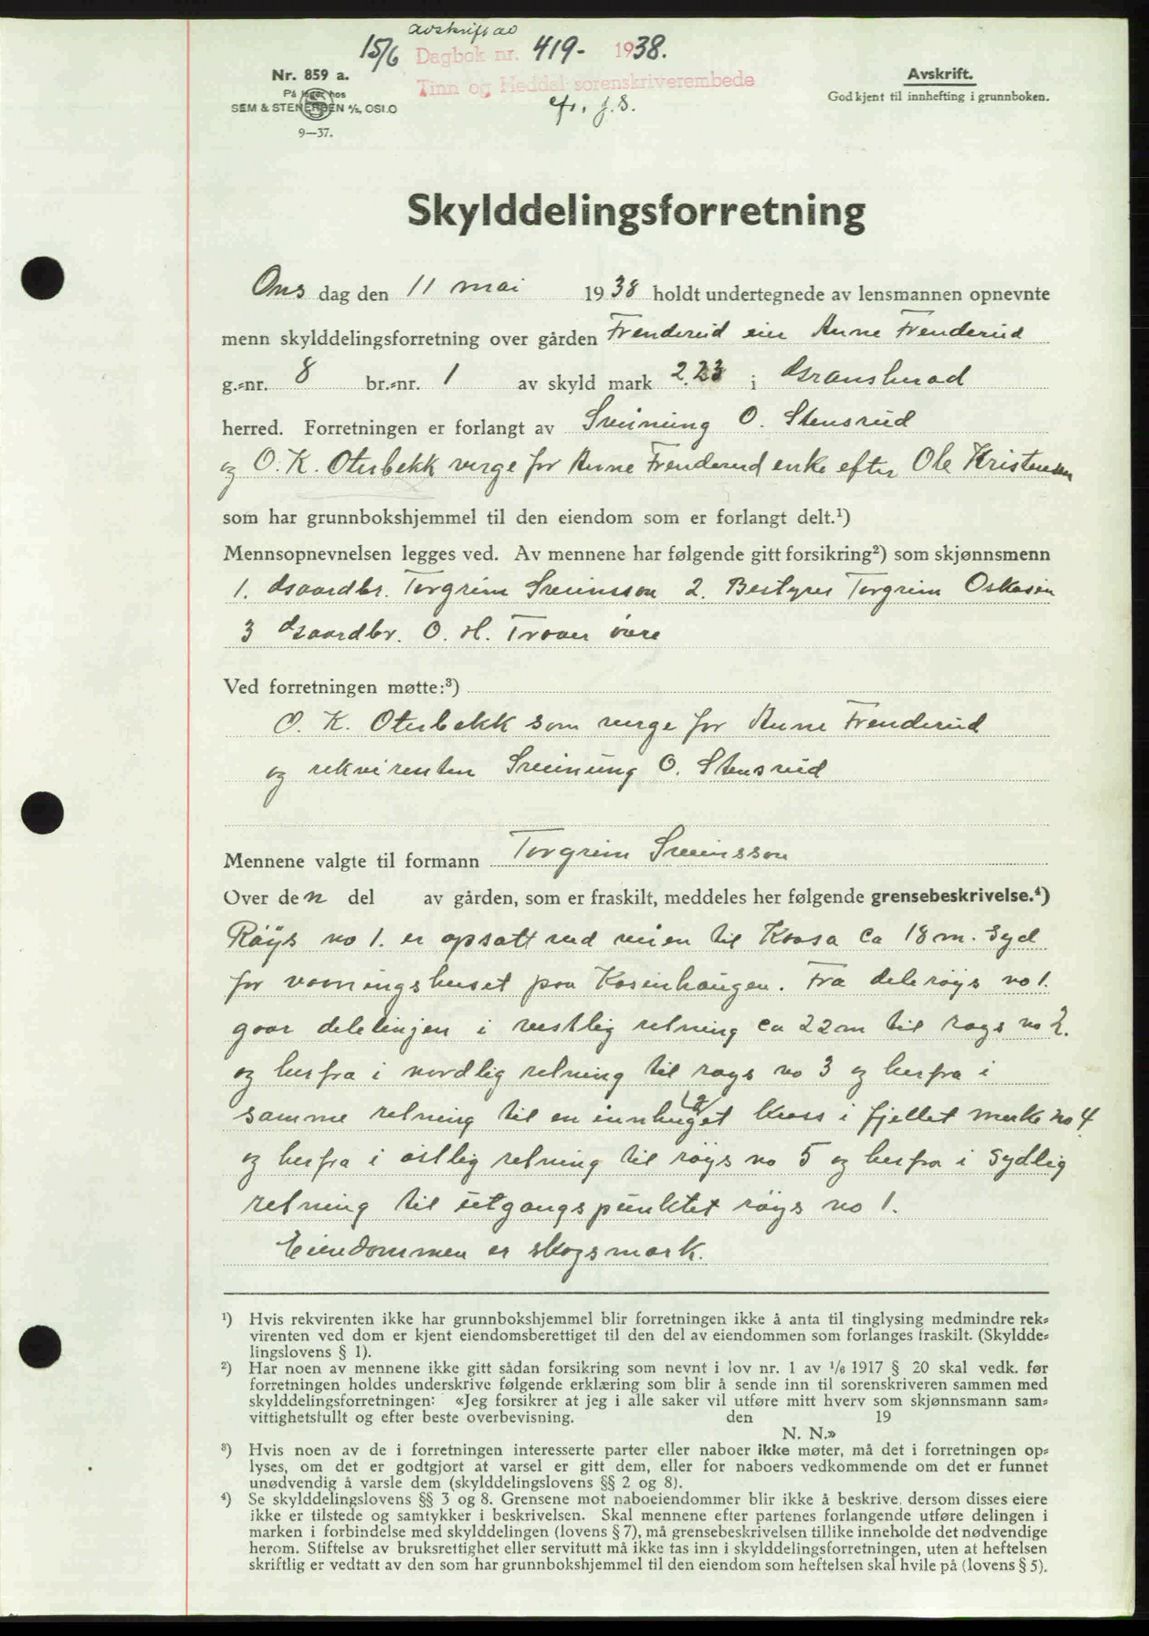 avskrift av
15/6 Dagbok nr. 419- 1938.
Tinn og Heddal sorenskriverembede
Nr. 859 a.
På lager hos
SEM & STENERSEN A/S, OSLO
9—37.
Avskrift.
Godkjent til innhefting i grunnboken.
Skylddelingsforretning
Ons dag den 11 mai 1938 holdt undertegnede av lensmannen opnevnte
menn skylddelingsforretning over gården Frenderud eier Anne Frenderud
g.-nr. 8 br.-nr. 1 av skyld mark 2.23 i Gransherad
herred. Forretningen er forlangt av Sveinung O. Stensrud
og O. K. Oterbekk verge for Anne Frenderud enke efter Ole Kristensen
som har grunnbokshjemmel til den eiendom som er forlangt delt.¹)
Mennsopnevnelsen legges ved. Av mennene har følgende gitt forsikring²) som skjønnsmenn
1. Gaardbr. Torgrim Sveinsson 2. Bestyrer Torgrim Oskasin
3 Gaardbr. O. H. Traaer øvre
Ved forretningen møtte:³)
O. K. Oterbekk som verge for Anne Frenderud
og rekvirenten Sveinung O. Stensrud
Mennene valgte til formann Torgrim Sveinsson
Over den del av gården, som er fraskilt, meddeles her følgende grensebeskrivelse.⁴)
Røys no 1. er opsatt ved veien til Kaasa ca 18 m. syd
for vaaningshuset paa Kosenhaugen. Fra delerøys no 1.
gaar delelinjen i vestlig retning ca 22 m til røys no 2.
og herfra i nordlig retning til røys no 3 og herfra i
samme retning til en innhugget kross i fjellet merke no 4
og herfra i østlig retning til røys no 5 og herfra i sydlig
retning til utgangspunktet røys no 1.
Eiendommen er skogsmark.
¹) Hvis rekvirenten ikke har grunnbokshjemmel blir forretningen ikke å anta til tinglysing medmindre rek-
virenten ved dom er kjent eiendomsberettiget til den del av eiendommen som forlanges fraskilt. (Skyldde-
lingslovens § 1).
²) Har noen av mennene ikke gitt sådan forsikring som nevnt i lov nr. 1 av ¹/₆ 1917 § 20 skal vedk. før
forretningen holdes underskrive følgende erklæring som blir å sende inn til sorenskriveren sammen med
skylddelingsforretningen: «Jeg forsikrer at jeg i alle saker vil utføre mitt hverv som skjønnsmann sam-
vittighetsfullt og efter beste overbevisning. den 19
N. N.»
³) Hvis noen av de i forretningen interesserte parter eller naboer ikke møter, må det i forretningen op-
lyses, om det er godtgjort at varsel er gitt dem, eller for naboers vedkommende om det er funnet
unødvendig å varsle dem (skylddelingslovens §§ 2 og 8).
⁴) Se skylddelingslovens §§ 3 og 8. Grensene mot naboeiendommer blir ikke å beskrive, dersom disses eiere
ikke er tilstede og samtykker i beskrivelsen. Skal mennene efter partenes forlangende utføre delingen i
marken i forbindelse med skylddelingen (lovens § 7), må grensebeskrivelsen tillike inneholde det nødvendige
herom. Stiftelse av bruksrettighet eller servitutt må ikke tas inn i skylddelingsforretningen, uten at heftelsen
skriftlig er vedtatt av den som har grunnbokshjemmel til den eiendom som heftelsen skal hvile på (lovens § 5).